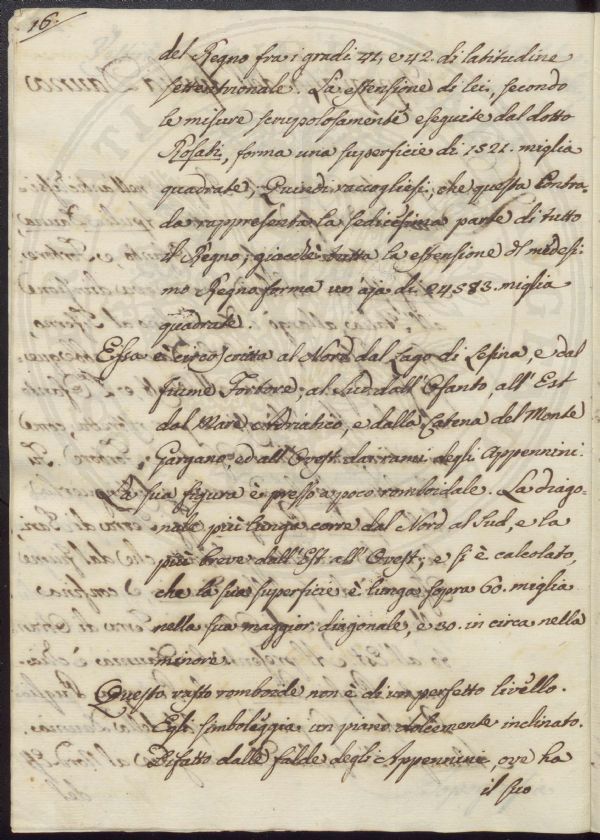 16.
del Regno fra i gradi 41, e 42. di latitudine
settentrionale. La estensione di lei, secondo
le misure scrupolosamente eseguite dal dotto
Rosati, forma una superficie di 1521. miglia
quadrate; Quindi raccogliesi, che questa Contra-
da rappresenta la sedicesima parte di tutto
il Regno; giacchè tutta la estensione del medesi-
mo Regno forma un' aja di 24583. miglia
quadrate.
Essa è circoscritta al Nord dal Lago di Lesina, e dal
fiume Fortore; al Sud dall' Ofanto, all' Est
dal Mare Adriatico, e dalla Catena del Monte
Gargano, ed all' Ovest dai rami degli Appennini.
La sua figura è presso a poco romboidale. La diago-
nale più lunga corre dal Nord al Sud, e la
più breve dall' Est all' Ovest; e si è calcolato,
che la sua superficie è lunga sopra 60. miglia
nella sua maggior diagonale, e 30. in circa nella
minore.
Questo vasto romboide non è di un perfetto livello.
Egli simboleggia un piano dolcemente inclinato.
Difatto dalle falde degli Appennini, ove ha
il suo